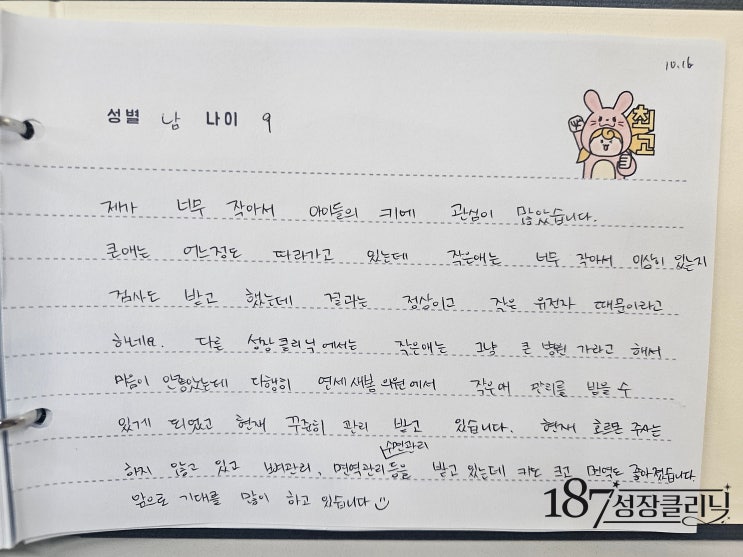 10.16
최고
성별 남 나이 9
제가 너무 작아서 아이들의 키에 관심이 많았습니다.
큰애는 어느정도 따라가고 있는데 작은애는 너무 작아서 이상이 있는지
검사도 받고 했는데 결과는 정상이고 작은 유전자 때문이라고
하네요. 다른 성장클리닉에서는 작은애는 그냥 큰 병원 가라고 해서
마음이 안좋았는데 다행히 연세새봄의원에서 작은애 관리를 받을 수
있게 되었고 현재 꾸준히 관리 받고 있습니다. 현재 호르몬 주사는
수면관리
하지 않고 있고 뼈관리, 면역관리 등을 받고 있는데 키도 크고 면역도 좋아졌습니다.
앞으로 기대를 많이 하고 있습니다
187성장클리닉